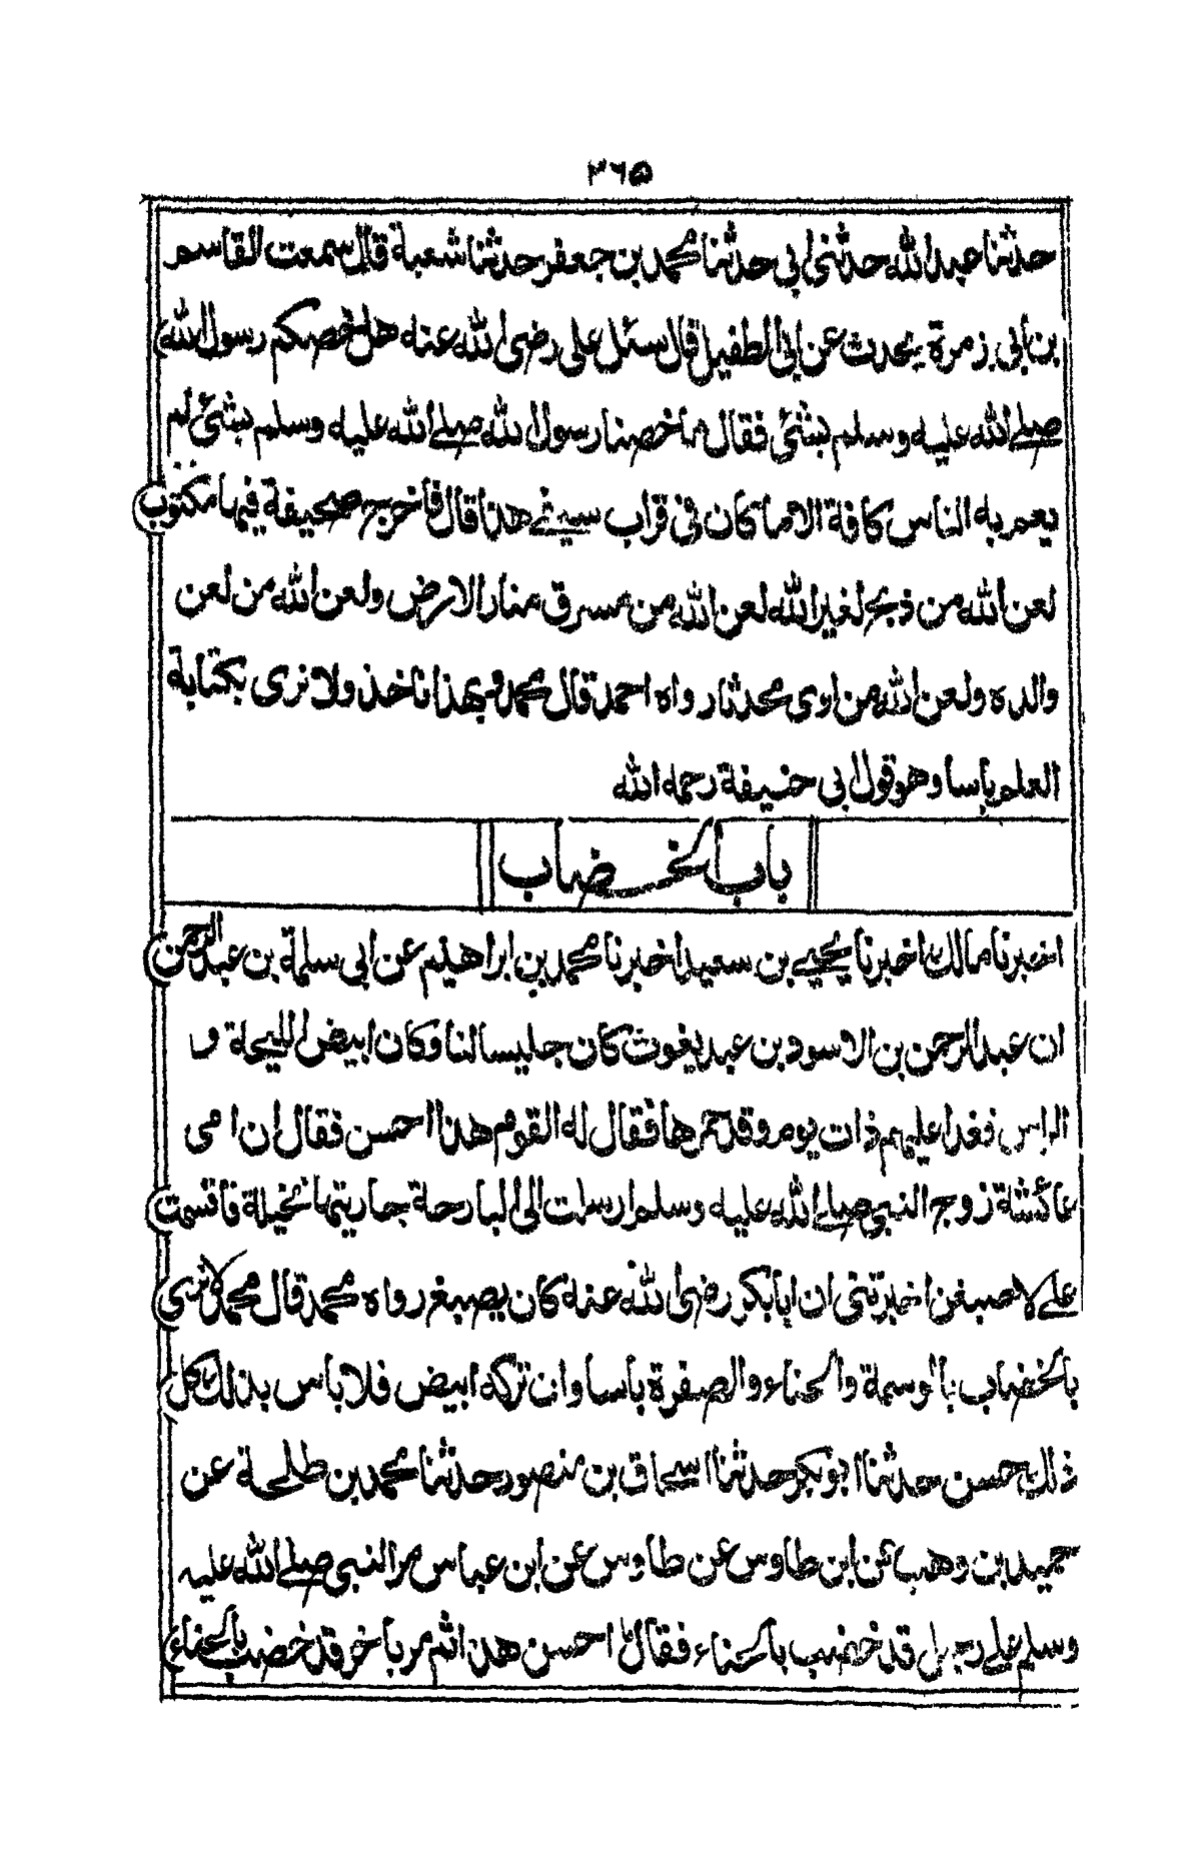 ٢٦٥
حدثنا عبد الله حدثني ابي حدثنا محمد بن جعفر حدثنا شعبة قال سمعت القاسم
بن ابي بزمرة يحدث عن ابي الطفيل قال سئل علي رضى الله عنه هل خصكم رسول الله
صلے الله عليه وسلم بشئ فقال ما خصنا رسول الله صلے الله عليه وسلم بشئ لم
يعم به الناس كافة الا ما كان في قراب سيفے هذا قال فاخرج صحيفة فيها مكتوب
لعن الله من ذبح لغير الله لعن الله من سرق منار الارض ولعن الله من لعن
والده ولعن الله من اوى محدثا رواه احمد قال محمد وبهذا ناخذ ولا نرى بكتابة
العلم باسا وهو قول ابي حنيفة رحمه الله
باب الخضاب
اخبرنا مالك اخبرنا يحيے بن سعيد اخبرنا محمد بن ابراهيم عن ابي سلمة بن عبد الرحمن
ان عبد الرحمن بن الاسود بن عبد يغوث كان جليسا لنا وكان ابيض اللحية و
الراس فغدا عليهم ذات يوم وقد حمرها فقال له القوم هذا احسن فقال ان امي
عائشة زوج النبي صلے الله عليه وسلم ارسلت الى البارحة جاريتها نخيلة فاقسمت
علے لاصبغن اخبرتني ان ابا بكر رضى الله عنه كان يصبغ رواه محمد قال محمد لا نرى
بالخضاب بالوسمة والحناء والصفرة باسا وان تركه ابيض فلا باس بذلك كل
ذلك حسن حدثنا ابو بكر حدثنا اسحاق بن منصور حدثنا محمد بن طلحة عن
حميد بن وهب عن ابن طاوس عن طاوس عن ابن عباس مر النبي صلے الله عليه
وسلم علے رجل قد خضب بالحناء فقال ما احسن هذا ثم مر باخر قد خضب بالحناء